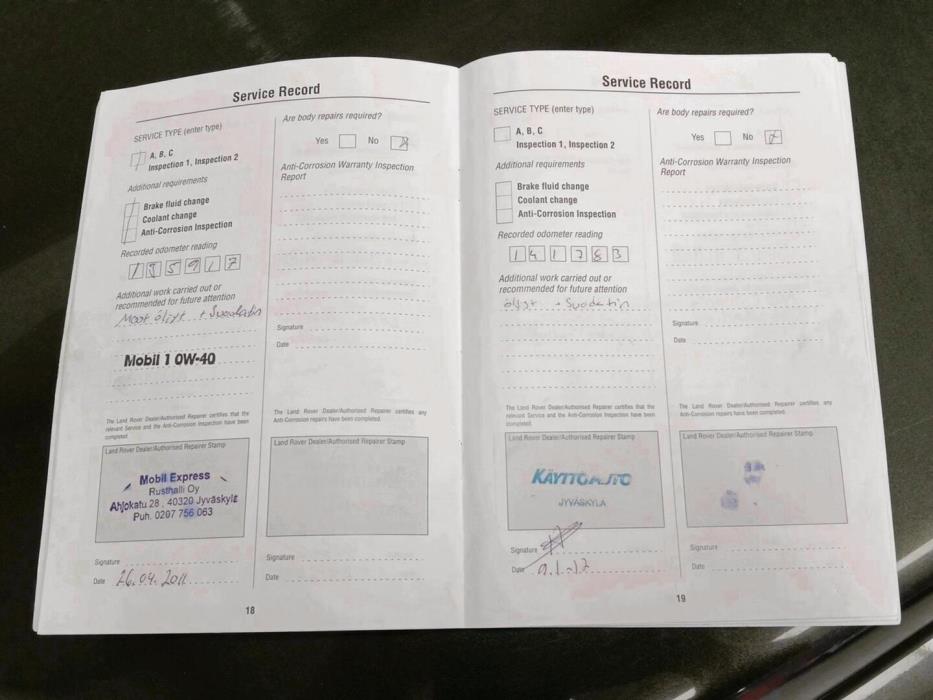 Service Record
SERVICE TYPE (enter type)
A, B, C
Inspection 1, Inspection 2
Additional requirements
Brake fluid change
Coolant change
Anti-Corrosion Inspection
Recorded odometer reading
135917
Additional work carried out or
recommended for future attention
öljyt + Suodatin
Mobil 1 0W-40
The Land Rover Dealer/Authorised Repairer certifies that the
relevant Service and the Anti-Corrosion Inspection have been
completed.
Land Rover Dealer/Authorised Repairer Stamp
Mobil Express
Rusthalli Oy
Ahjokatu 28, 40320 Jyväskylä
Puh. 0207 756 063
Signature
Date 26.04.2011
18
Are body repairs required?
Yes No
Anti-Corrosion Warranty Inspection
Report
Signature
Date
The Land Rover Dealer/Authorised Repairer certifies any
Anti-Corrosion repairs have been completed.
Land Rover Dealer/Authorised Repairer Stamp
Signature
Date
Service Record
SERVICE TYPE (enter type)
A, B, C
Inspection 1, Inspection 2
Additional requirements
Brake fluid change
Coolant change
Anti-Corrosion Inspection
Recorded odometer reading
141783
Additional work carried out or
recommended for future attention
öljyt + Suodatin
The Land Rover Dealer/Authorised Repairer certifies that the
relevant Service and the Anti-Corrosion Inspection have been
completed.
Land Rover Dealer/Authorised Repairer Stamp
KÄYTTÖAUTO
JYVÄSKYLÄ
Signature
Date
19
Are body repairs required?
Yes No
Anti-Corrosion Warranty Inspection
Report
Signature
Date
The Land Rover Dealer/Authorised Repairer certifies, any
Anti-Corrosion repairs have been completed.
Land Rover Dealer/Authorised Repairer Stamp
Signature
Date